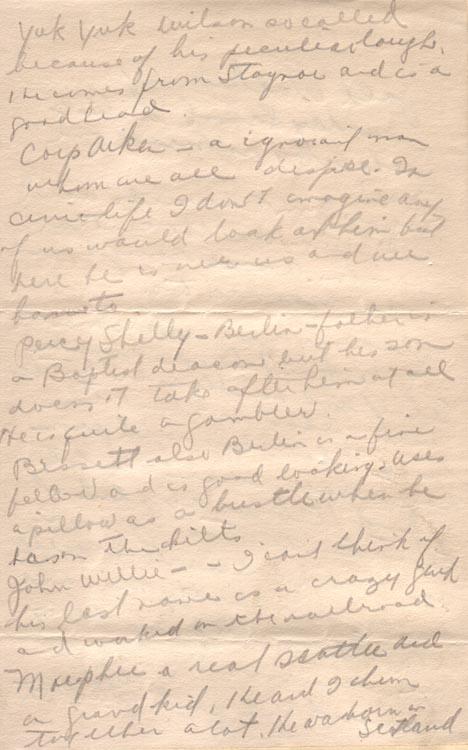 Yuk Yuk Wilson so called
because of his peculiar laugh.
He comes from Stayner and is a
good head.
Corp Aiken - a ignorant man
whom we all despise. In
civie life I don't imagine any
of us would look at him but
here he is over us and we
have to.
Percy Shelly - Berlin - father is
a Baptist deacon, but his son
doesn't take after him at all
He is quite a gambler.
Bissett also Berlin is a fine
fellow and is good looking. uses
a pillow as a bustle when he
has on the kilts
John Willie - - I can't think of
his last name is a crazy
and worked on the railroad.
a real scottie and
a grand kid, He and I chum
together a lot. He was born in
Scotland